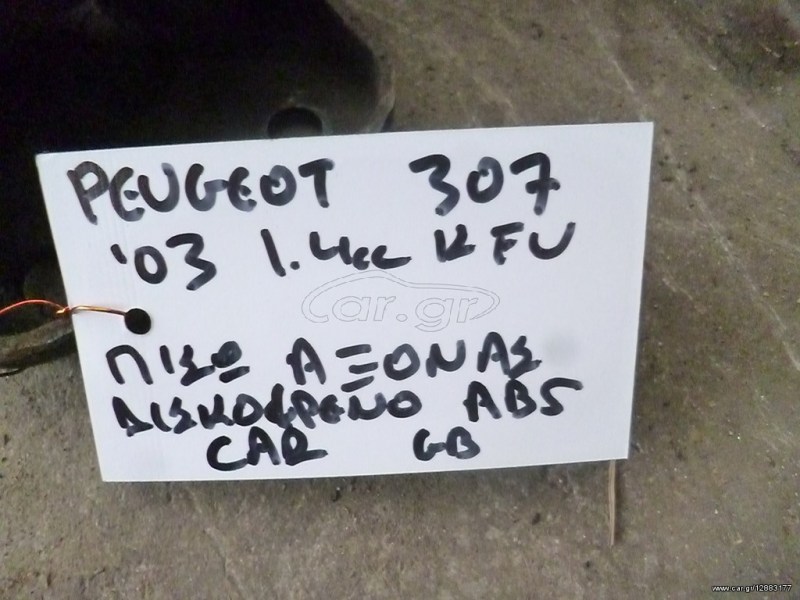 PEUGEOT 307
'03 1.4cc KFU
car.gr
ΠΙΣΩ ΑΞΟΝΑΣ
ΔΙΣΚΟΦΡΕΝΟ ABS
CAR GB
www.car.gr/12883177